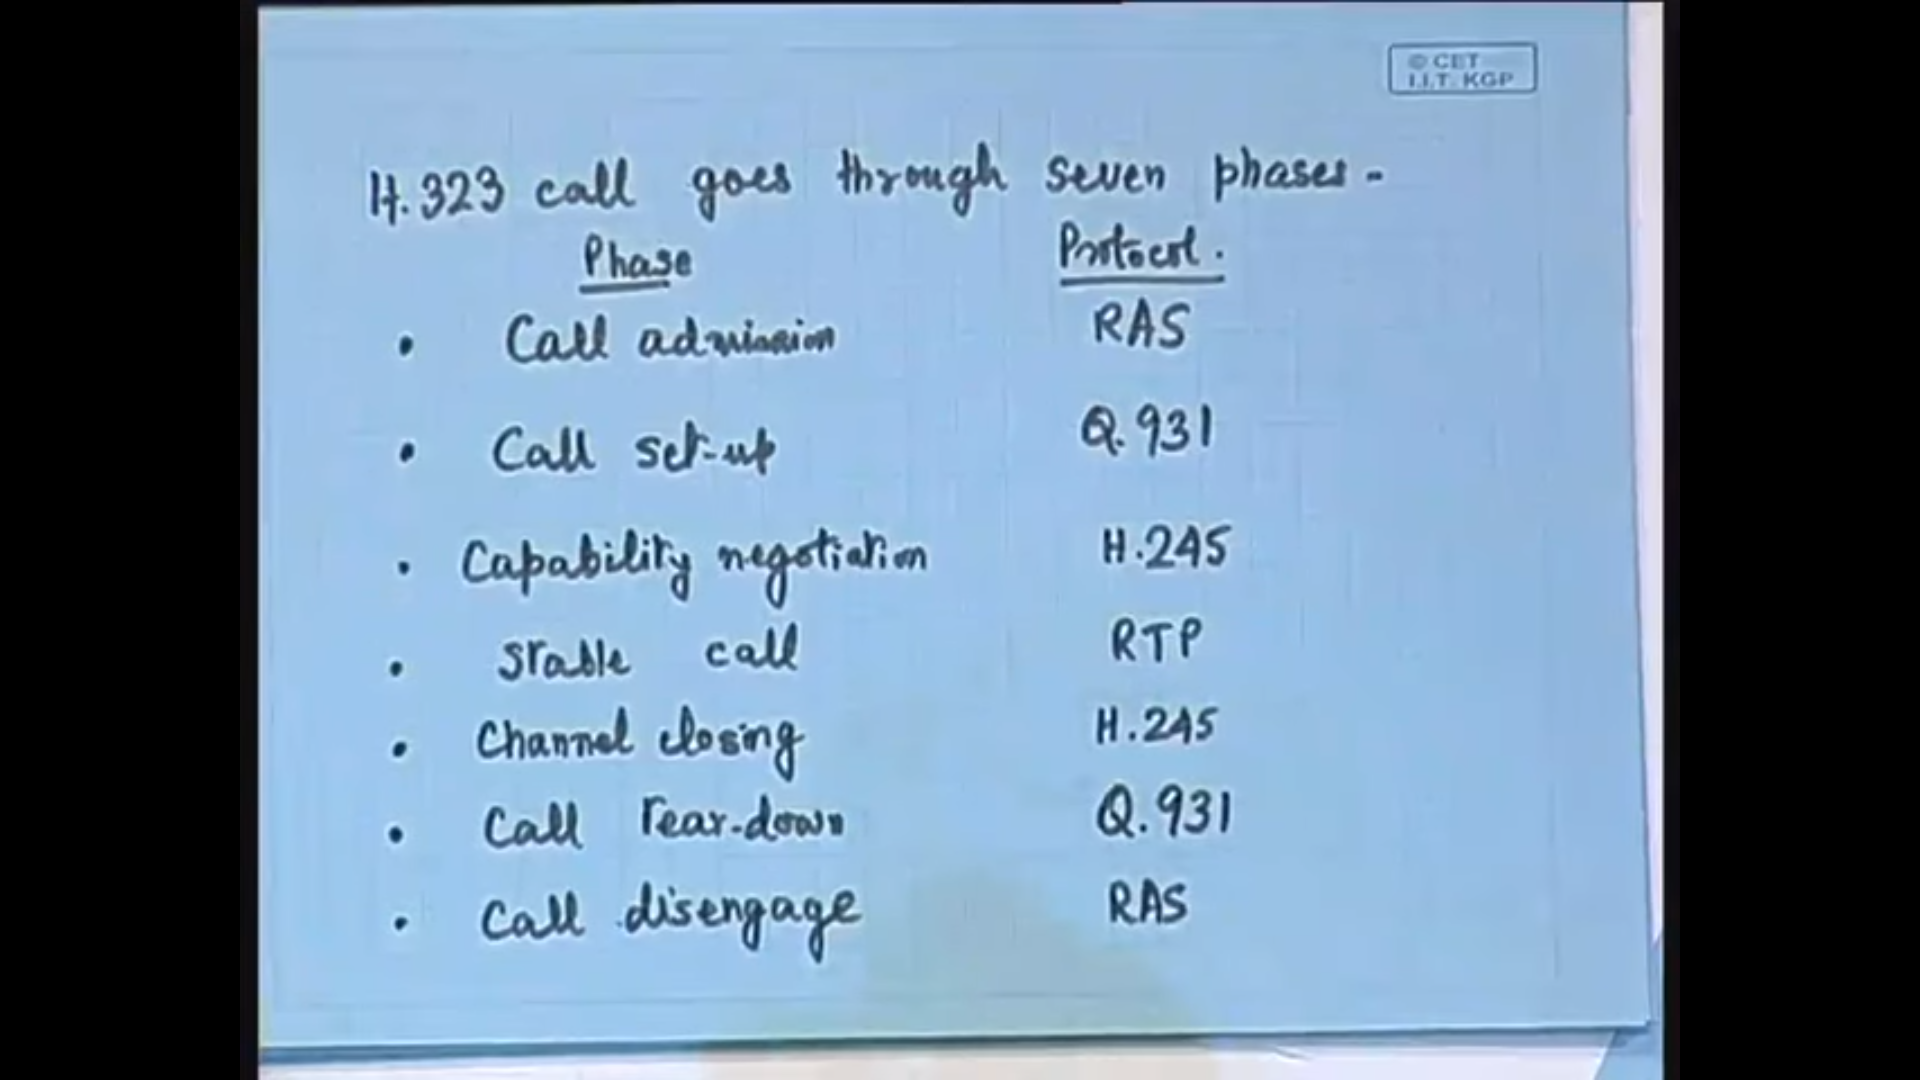 © CET
I.I.T. KGP
H.323 call goes through seven phases -
Phase Protocol.
• Call admission RAS
• Call set-up Q.931
• Capability negotiation H.245
• Stable call RTP
• Channel closing H.245
• Call tear-down Q.931
• Call disengage RAS